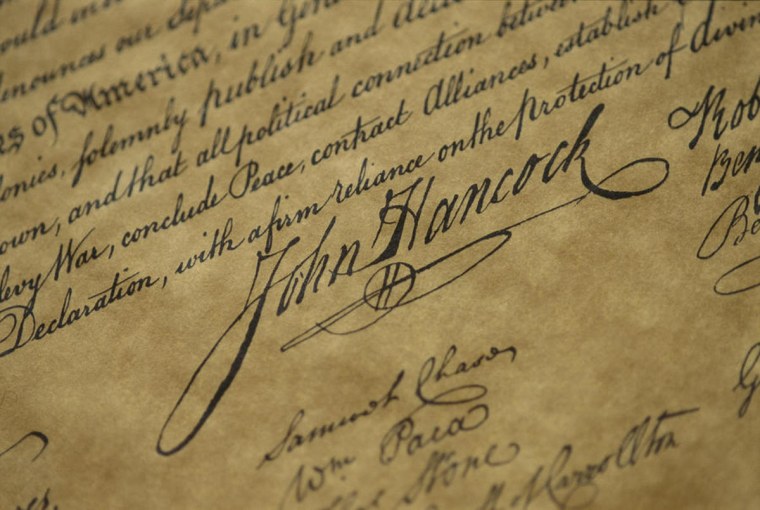 would in
denounces our Sepa
s of America, in Gen
onies, solemnly publish and decl
own, and that all political connection between
levy War, conclude Peace, contract Alliances, establish
Declaration, with a firm reliance on the protection of divin
John Hancock
Rob
Ben
Be
Samuel Chase
Wm Paca
Stone
of Carrollton